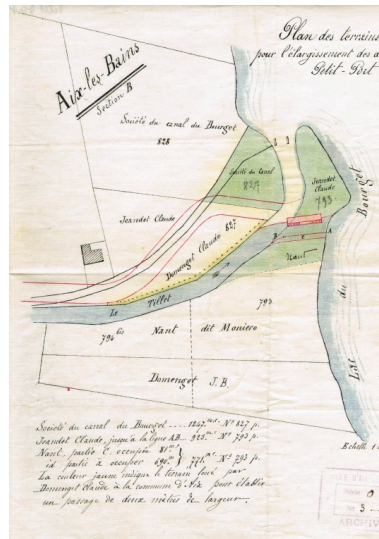 Plan des terrains
pour l'élargissement des a
Petit-Port
Aix-les-Bains
Section B
Société du canal du Bourget
828
Société du Canal
827
Jeandet
Claude
793
Jeandet Claude
Domenget Claude 827
B C A
Nant
Le Tillet
793
794 bis Nant dit Moniero
Domenget J.B.
Lac du Bourget
Société du canal du Bourget .... 1247 Nº 827 p.
Jeandet Claude, jusqu'à la ligne AB.. 925 Nº 793 p.
Nant, partie C occupée 81
id partie à occuper 690 771 Nº 793 p.
La couleur jaune indique le terrain loué par
Domenget Claude à la commune d'Aix pour établir
un passage de deux mètres de largeur.
Echelle
ARCHIV